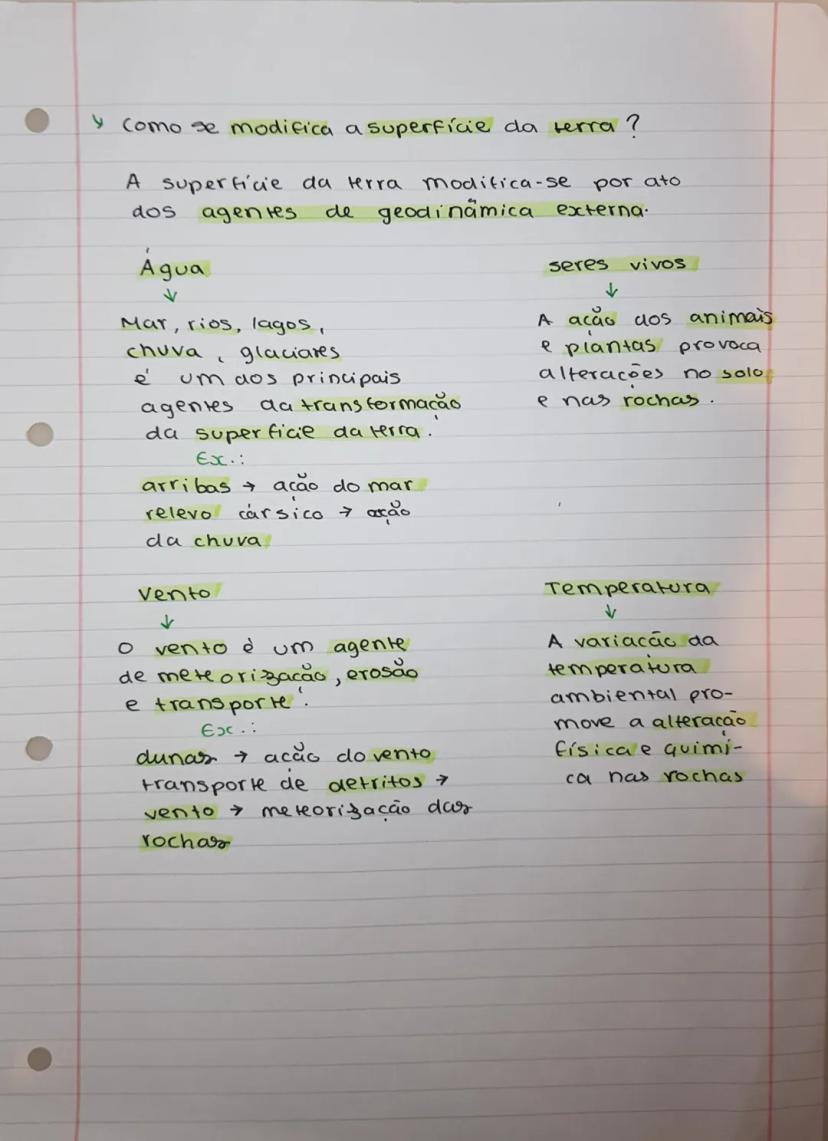 Como se modifica a superfície da terra?
A superfície da terra modifica-se por ato
dos agentes de geodinâmica externa.
Água
↓
Mar, rios, lagos,
chuva, glaciares
é um dos principais
agentes da transformação
da superfície da terra.
Ex.:
arribas → ação do mar
relevo cársico → ação
da chuva
seres vivos
↓
A ação dos animais
e plantas provoca
alterações no solo
e nas rochas.
Vento
↓
O vento é um agente
de meteorização, erosão
e transporte.
Ex.:
dunas → ação do vento
transporte de detritos →
vento → meteorização das
rochas
Temperatura
↓
A variação da
temperatura
ambiental pro-
move a alteração
física e quími-
ca nas rochas